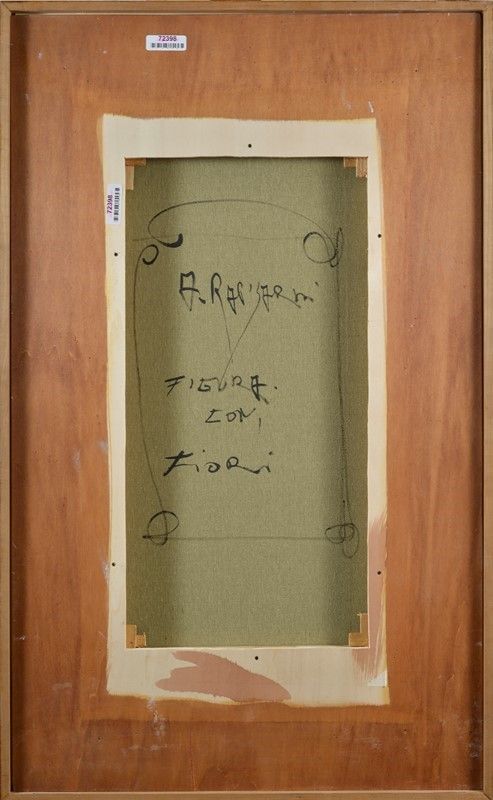 72398
72398
FIGURA.
CON,
Fiori